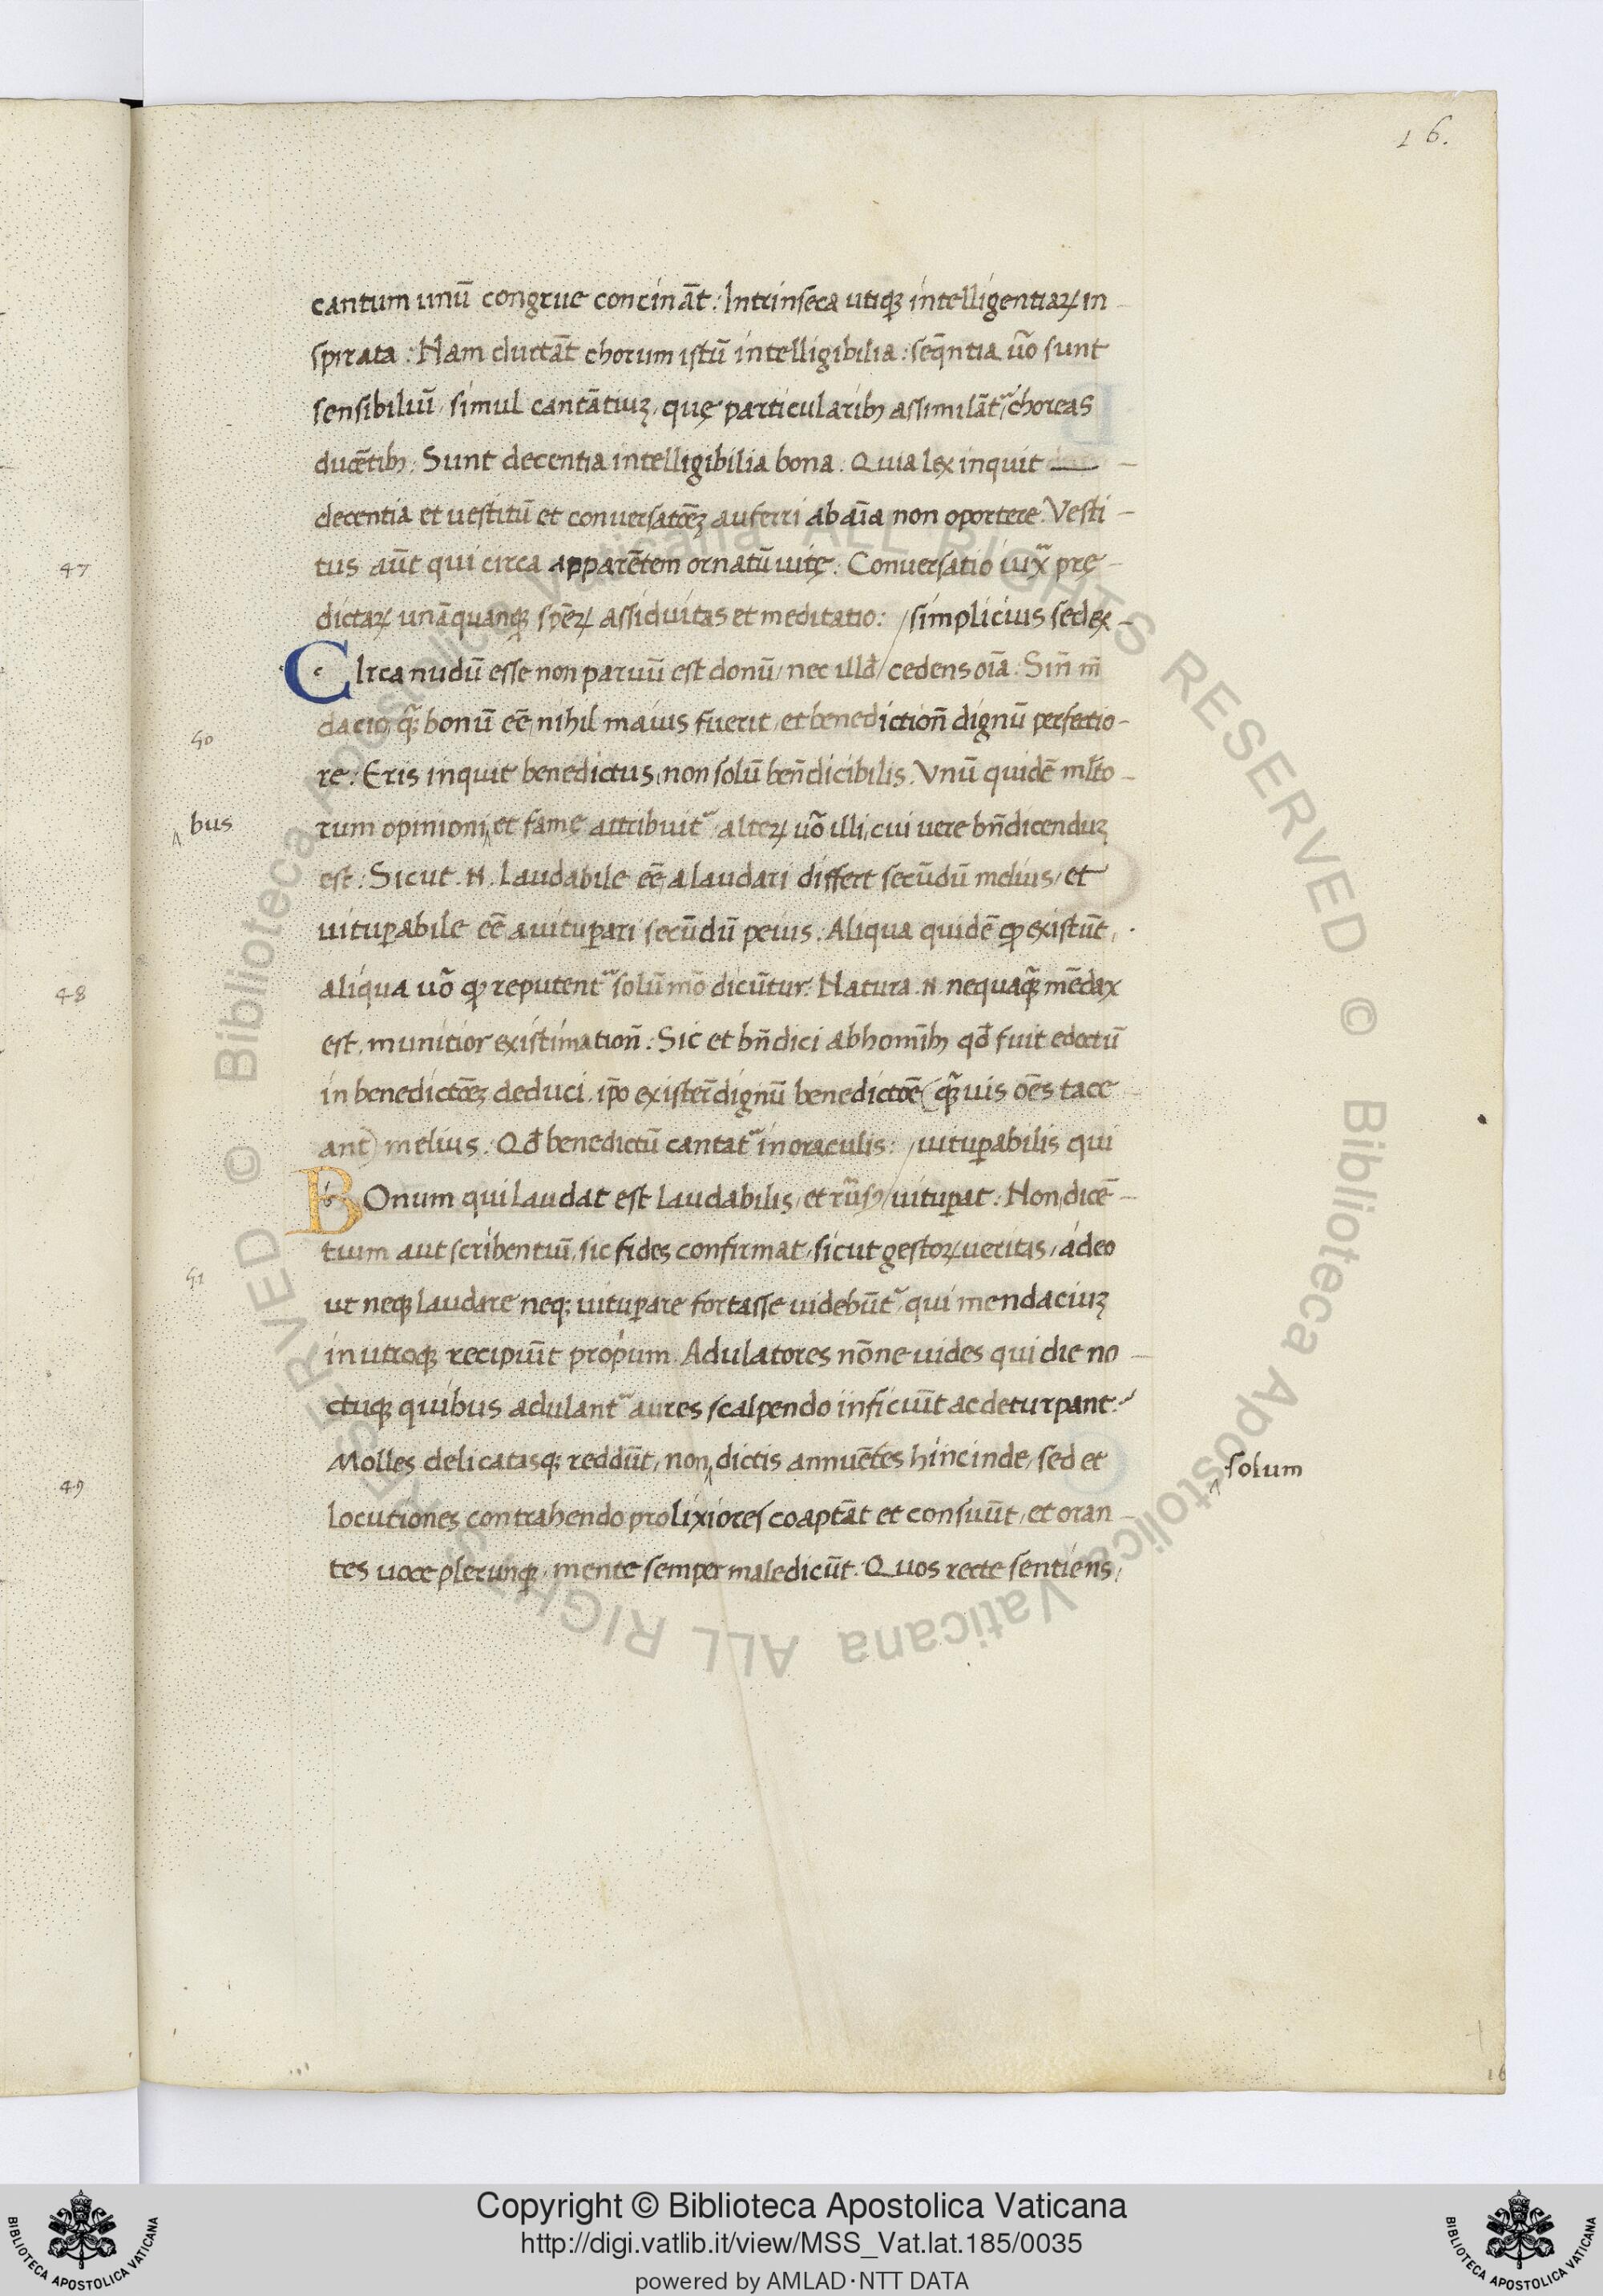 16.
cantum unū congrue concinãt: Intrinseca utiqꝫ intelligentiaꝝ in-
spirata: Nam ductãt chorum istū intelligibilia: seqñtia uõ sunt
sensibiliū, simul cantãtiuꝫ, quę particularibꝫ assimilãt᷑, choreas
ducẽtibꝫ: Sunt decentia intelligibilia bona. Quia lex inquit —
decentia et uestitū et conuersatõeꝫ auferri ab aĩa non oportere. Vesti-
47
tus aūt qui circa apparẽtem ornatū uitę: Conuersatio iux̃ prę-
dictaꝝ unãquanqꝫ spẽꝝ assiduitas et meditatio: / simplicius sed ex-
CIrca nudū esse non paruū est donū, nec illđ / cedens oĩa. Sin̄ m̄
dacio, qꝫ bonū eẽ, nihil maius fuerit, et benediction̄ dignū perfectio-
50
re: Eris inquit benedictus, non solū ben̄dicibilis. Vnū quidẽ mlto-
bus
rum opinioni‸ et famę attribuit᷑, alteꝝ uõ illi, cui uere bn̄dicenduꝫ
est: Sicut .N. laudabile eẽ, a laudari differt secūdū melius, et
uituꝑabile eẽ, a uituꝑari secūdū peius. Aliqua quidẽ ꝙ existūt,
48
aliqua uõ ꝙ reputent᷑ solū mõ dicūtur: Natura .N. nequaqꝫ mẽdax
est, munitior existimation̄: Sic et bn̄dici ab homĩbꝫ qđ fuit edoctū
in benedictõeꝫ deduci, ip̄o existeñ dignū benedictõe (qꝫuis oẽs tace
ant) melius: Qđ benedictū cantat᷑ in oraculis: / uituꝑabilis qui
BOnum qui laudat est laudabilis, et rūsꝫ / uituꝑat: Non dicẽ-
tium aut scribentiū, sic fides confirmat, sicut gestoꝝ ueritas, adeo
51
ut neqꝫ laudare neqꝫ uituꝑare fortasse uidebūt᷑, qui mendaciuꝫ
in utroqꝫ recipiūt proprium. Adulatores nõne uides qui die no-
ctuqꝫ quibus adulant᷑ aures scalpendo inficiūt ac deturpant:
Molles delicatasqꝫ reddūt, non‸ dictis annuẽtes hinc inde, sed et
solum
49
locutiones contrahendo prolixiores coaptãt et consuūt, et oran-
tes uoce plerunqꝫ, mente semper maledicūt. Quos recte sentiens,
16
© Biblioteca Apostolica Vaticana ALL RIGHTS RESERVED © Biblioteca Apostolica Vaticana ALL RIGHTS RESERVED
BIBLIOTECA APOSTOLICA VATICANA
Copyright © Biblioteca Apostolica Vaticana
http://digi.vatlib.it/view/MSS_Vat.lat.185/0035
powered by AMLAD·NTT DATA
BIBLIOTECA APOSTOLICA VATICANA